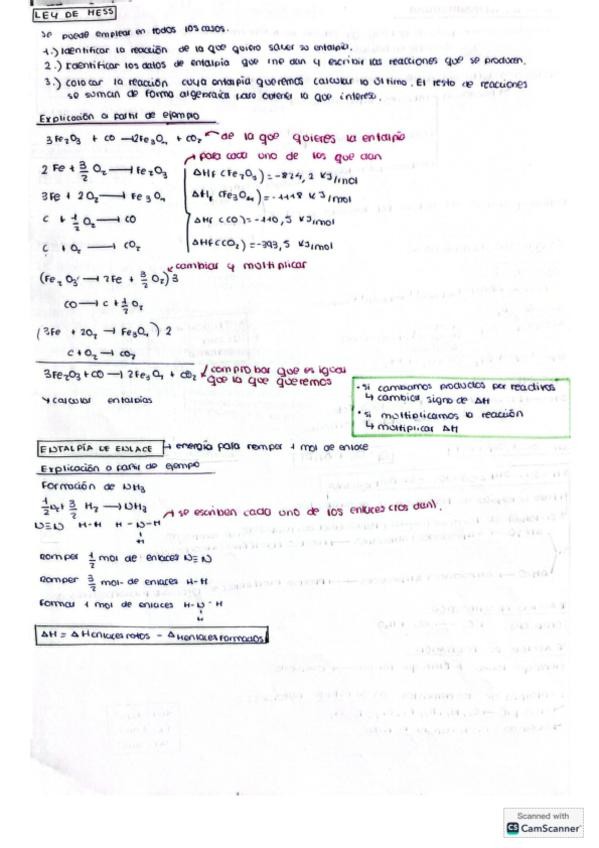 LEY DE HESS
Se puede emplear en todos los casos.
1.) Identificar la reacción de la que quiero saber su entalpía.
2.) Identificar los datos de entalpía que me dan y escribir las reacciones que se producen.
3.) colocar la reacción cuya entalpía queremos calcular lo último. El resto de reacciones
se suman de forma algebraica para obtener la que interesa.
Explicación a partir de ejemplo
3Fe₂O₃ + CO → 2Fe₃O₄ + CO₂ de la que quieres la entalpía
para cada uno de los que dan
2 Fe + 3/2 O₂ → Fe₂O₃ ΔHf (Fe₂O₃) = -824,2 KJ/mol
3Fe + 2O₂ → Fe₃O₄ ΔHf (Fe₃O₄) = -1118 KJ/mol
C + 1/2 O₂ → CO ΔHf (CO) = -110,5 KJ/mol
C + O₂ → CO₂ ΔHf (CO₂) = -393,5 KJ/mol
cambiar y multiplicar
(Fe₂O₃ → 2Fe + 3/2 O₂) 3
CO → C + 1/2 O₂
(3Fe + 2O₂ → Fe₃O₄) 2
C + O₂ → CO₂
3Fe₂O₃ + CO → 2Fe₃O₄ + CO₂ comprobar que es igual
que la que queremos
↳ calcular entalpías
· Si cambiamos productos por reactivos
↳ cambia signo de ΔH
· si multiplicamos la reacción
↳ multiplicar ΔH
ENTALPÍA DE ENLACE → energía para romper 1 mol de enlace
Explicación a partir de ejempo
Formación de NH₃
1/2 N₂ + 3/2 H₂ → NH₃
se escriben cada uno de los enlaces (los dan).
N≡N H-H H-N-H
H
Romper 1/2 mol de enlaces N≡N
Romper 3/2 mol de enlaces H-H
Formar 1 mol de enlaces H-N-H
H
ΔH = ΔHenlaces rotos - ΔHenlaces formados
Scanned with
CS CamScanner